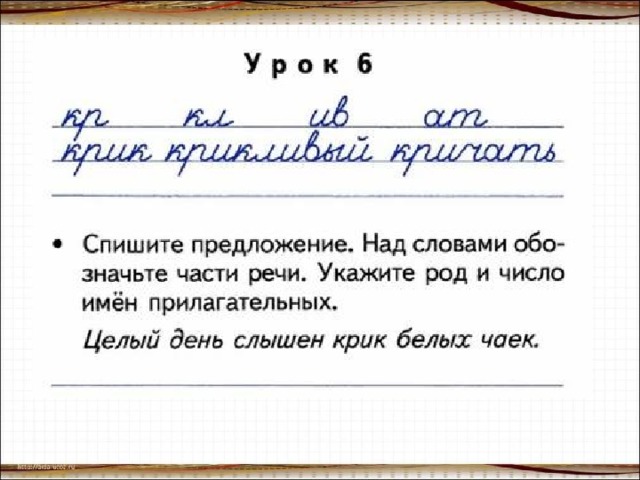 Урок 6
кр кл ив ат
крик крикливый кричать
• Спишите предложение. Над словами обо-
значьте части речи. Укажите род и число
имён прилагательных.
Целый день слышен крик белых чаек.